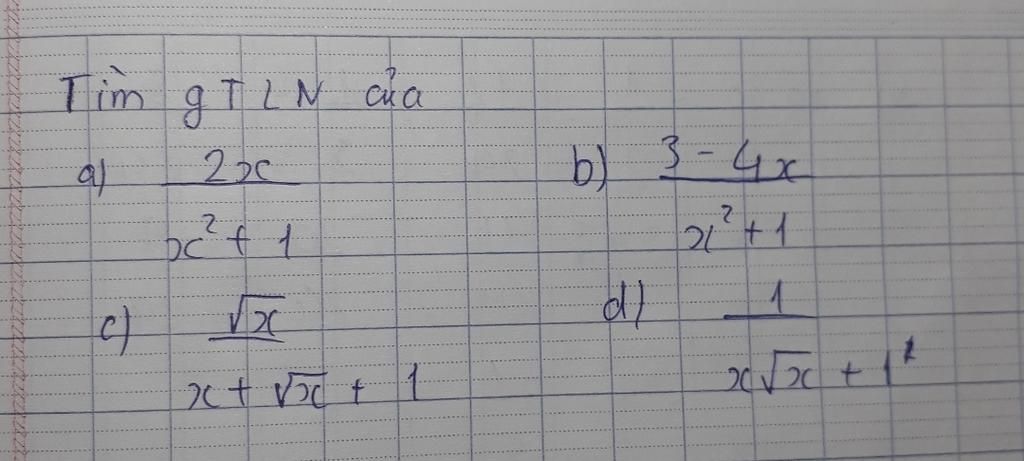 Tìm gTLN của
a) 2x / x² + 1 b) 3 - 4x / x² + 1
c) √x / x + √x + 1 d) 1 / x√x + 1